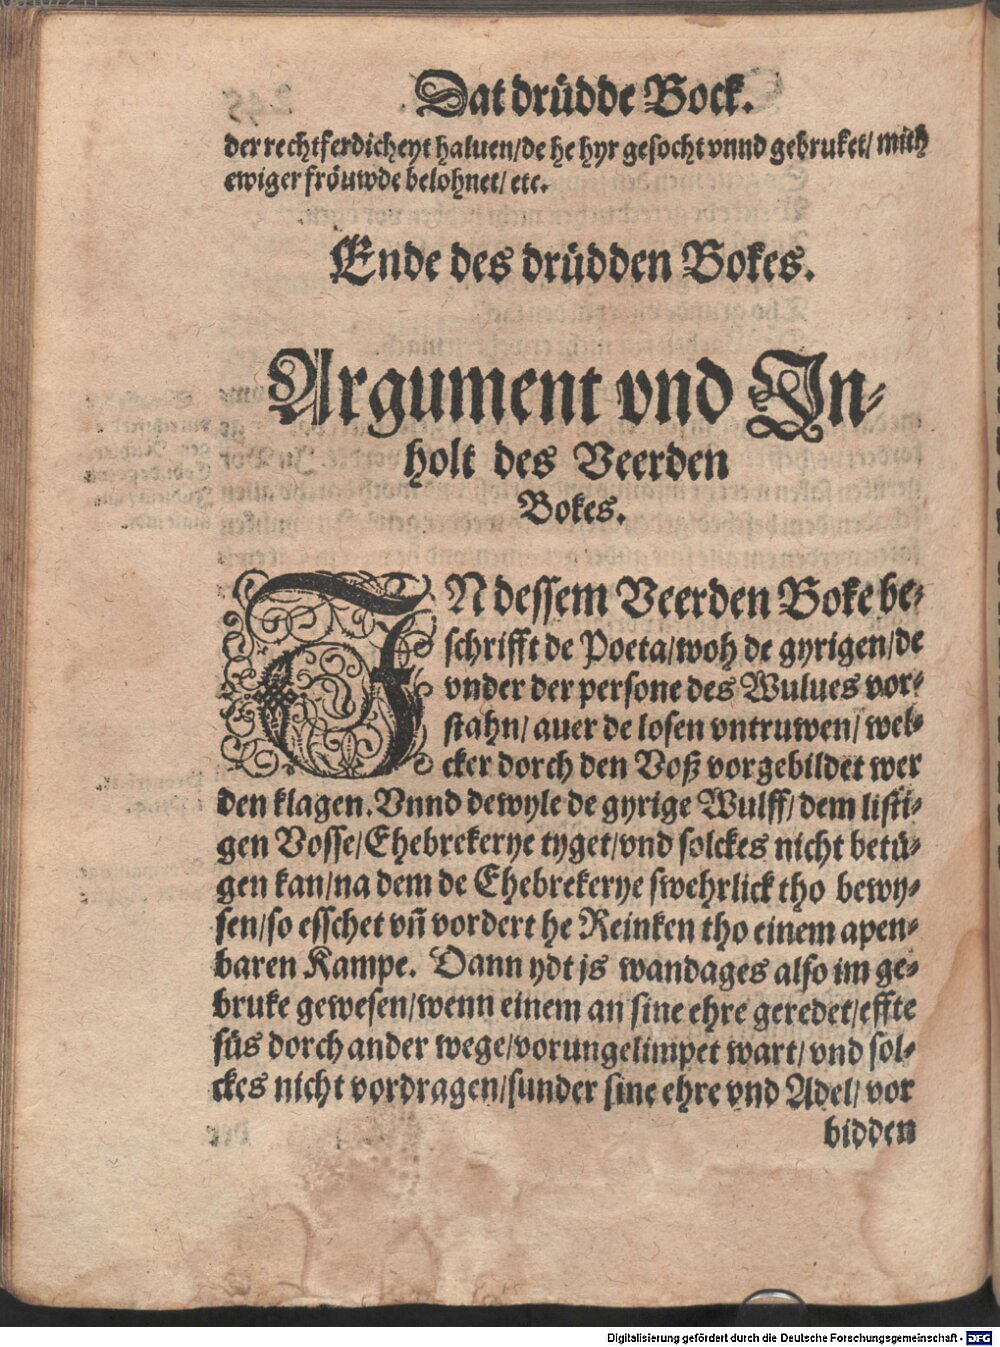 Dat drüdde Bock.
der rechtferdicheyt haluen/de he hyr gesocht vnnd gebruket/ mith
ewiger fröuwde belohnet/ etc.
Ende des drüdden Bokes.
Argument vnd In-
holt des Veerden
Bokes.
IN dessem Veerden Boke be-
schrifft de Poeta/woh de gyrigen/de
vnder der persone des Wulues vor-
stahn/ auer de losen vntruwen/ wel-
cker dorch den Voß vorgebildet wer
den klagen. Vnnd dewyle de gyrige Wulff/ dem listi-
gen Vosse/Ehebrekerye tyget/vnd solckes nicht betü-
gen kan/na dem de Ehebrekerye swehrlick tho bewy-
sen/so esschet vñ vordert he Reinken tho einem apen-
baren Kampe. Dann ydt js wandages also im ge-
bruke gewesen/wenn einem an sine ehre geredet/effte
süs dorch ander wege/vorungelimpet wart/ vnd sol-
ckes nicht vordragen/sunder sine ehre vnd Adel/ vor
bidden
Digitalisierung gefördert durch die Deutsche Forschungsgemeinschaft - DFG